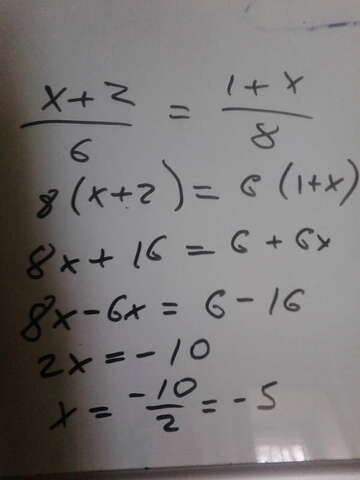 x+2/6 = 1+x/8
8(x+2) = 6(1+x)
8x+16 = 6+6x
8x-6x = 6-16
2x = -10
x = -10/2 = -5